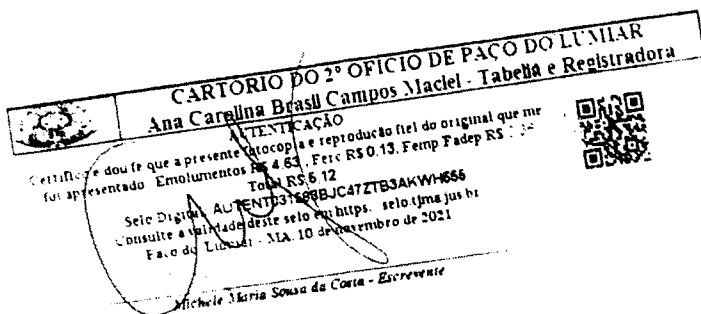 CARTÓRIO DO 2º OFÍCIO DE PAÇO DO LUMIAR
Ana Carolina Brasil Campos Maciel - Tabeliã e Registradora
AUTENTICAÇÃO
Certifico e dou fe que a presente fotocopia e reprodução fiel do original que me
foi apresentado Emolumentos R$ 4,63, Ferc R$ 0.13, Femp Fadep R$
Total R$ 5,12
Selo Digital
Consulte a validade deste selo em https. selo.tjma.jus.br
Paço do Lumiar - MA. 10 de novembro de 2021
Michele Maria Sousa da Costa - Escrevente